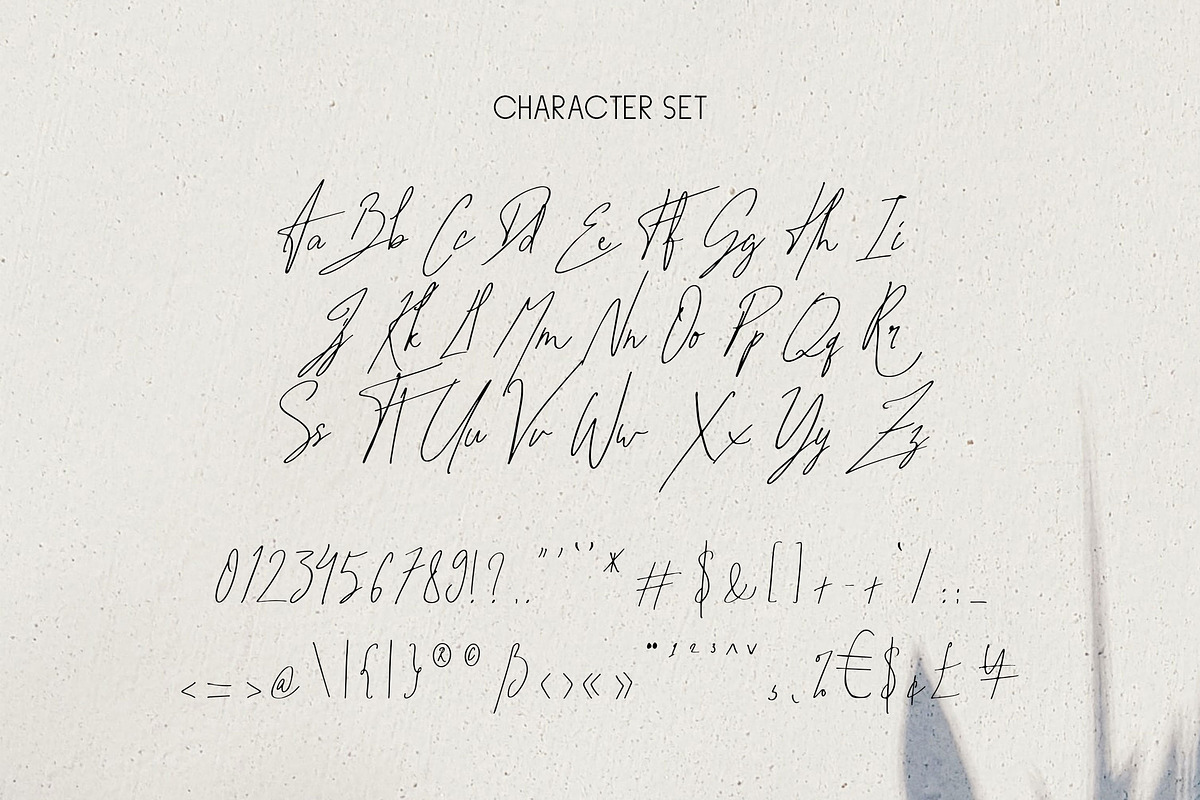 CHARACTER SET
Aa Bb Cc Dd Ee Ff Gg Hh Ii
Jj Kk Ll Mm Nn Oo Pp Qq Rr
Ss Tt Uu Vv Ww Xx Yy Zz
0123456789!?.. "'‘’* #$&[]+-+`/:;_
<=>@\|{|}®© ß‹›«»¨¹²³^ˇ¸˛%€$¢£¥